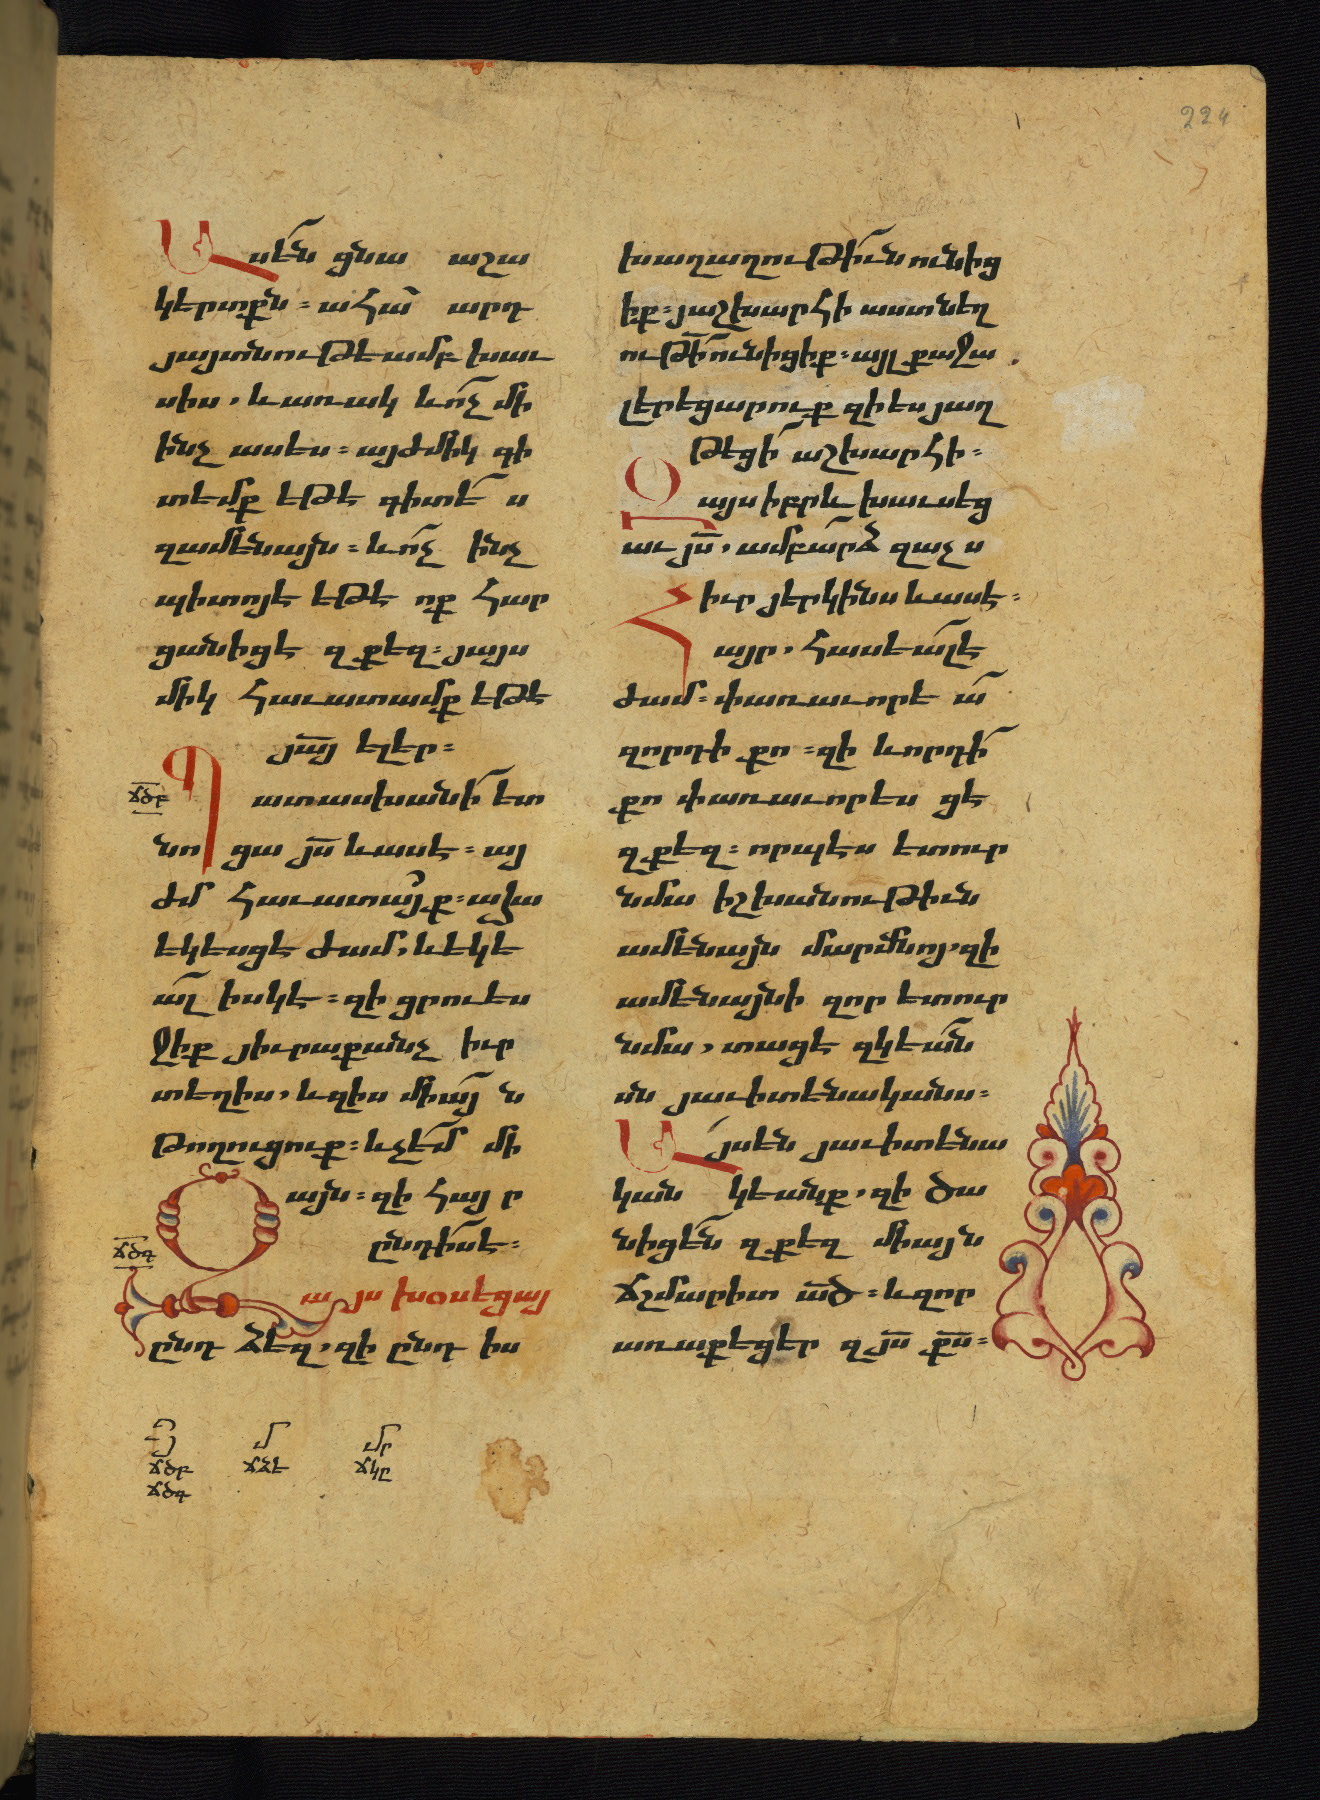 224
Ասեն ցնա աշա
կերտքն ։ ահա՛ արդ
յայտնութեամբ խաւ
սիս , և առակ և ոչ մի
ինչ ասես ։ այժմիկ գի
տեմք եթե գիտես
զամենայն ։ և ոչ ինչ
պիտոյե եթե ոք հար
ցանիցե զքեզ ։ յայս
միկ հաւատամք եթե
յայ ելեր ։
ճծբ
Պատասխանի ետ
նոցա յս և ասե ։ այ
ժմ հաւատայք ։ ահա
եկեսցե ժամ , և եկե
ալ իսկե ։ զի ցրուես
ջիք յիւրաքանչ իւր
տեղիս , և զիս միայն
թողուցուք ։ և չեմ մի
այն ։ զի հայր
ընդիսե ։
ճծգ
Զայս խօսեցայ
ընդ ձեզ , զի ընդ իս
խաղաղութիւն ունից
իք ։ յաշխարհի աստ նեղ
ութի ունիցիք ։ այլ քաջա
լերեցարուք զի ես յաղ
թեցի աշխարհի ։
Զայս իբրև խաւսեց
աւ յս , ամբարձ զաչս
իւր յերկինս և ասե ։
Հայր , հասեալե
ժամ ։ փառաւորե ա
զորդի քո ։ զի և որդի
քո փառաւորես ցե
զքեզ ։ որպես ետուր
նմա իշխանութիւն
ամենայն մարմնոյ , զի
ամենայնի զոր ետուր
նմա , տացե զկեան
սն յաւիտենականս ։
Այսեն յաւիտենա
կան կեանք , զի ծա
նիցեն զքեզ միայն
ճշմարիտ ած ։ և զոր
առաքեցեր զյս քս ։
մ մր
ճծբ ճձե ճկը
ճծգ